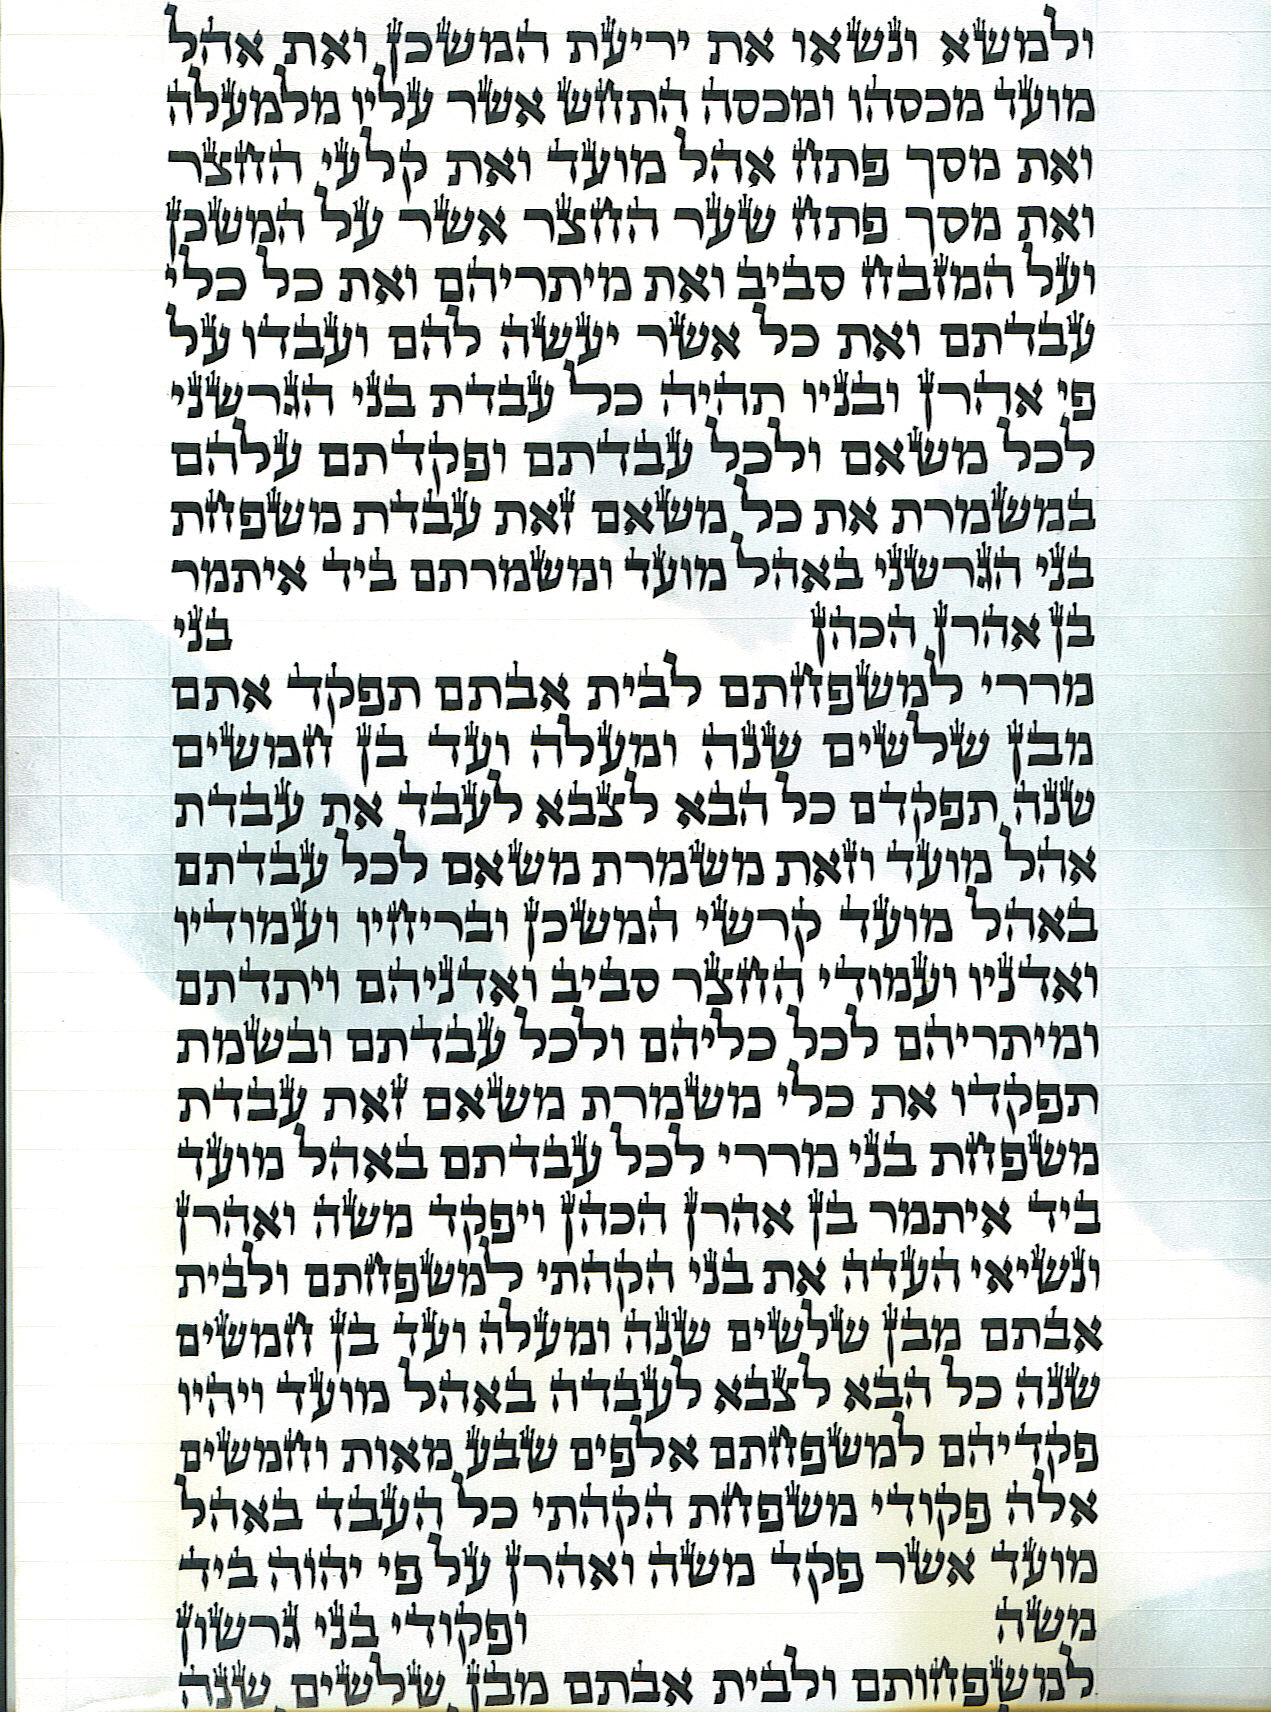 ולמשא ונשאו את יריעת המשכן ואת אהל
מועד מכסהו ומכסה התחש אשר עליו מלמעלה
ואת מסך פתח אהל מועד ואת קלעי החצר
ואת מסך פתח שער החצר אשר על המשכן
ועל המזבח סביב ואת מיתריהם ואת כל כלי
עבדתם ואת כל אשר יעשה להם ועבדו על
פי אהרן ובניו תהיה כל עבדת בני הגרשני
לכל משאם ולכל עבדתם ופקדתם עלהם
במשמרת את כל משאם זאת עבדת משפחת
בני הגרשני באהל מועד ומשמרתם ביד איתמר
בן אהרן הכהן בני
מררי למשפחתם לבית אבתם תפקד אתם
מבן שלשים שנה ומעלה ועד בן חמשים
שנה תפקדם כל הבא לצבא לעבד את עבדת
אהל מועד וזאת משמרת משאם לכל עבדתם
באהל מועד קרשי המשכן ובריחיו ועמודיו
ואדניו ועמודי החצר סביב ואדניהם ויתדתם
ומיתריהם לכל כליהם ולכל עבדתם ובשמת
תפקדו את כלי משמרת משאם זאת עבדת
משפחת בני מררי לכל עבדתם באהל מועד
ביד איתמר בן אהרן הכהן ויפקד משה ואהרן
ונשיאי העדה את בני הקהתי למשפחתם ולבית
אבתם מבן שלשים שנה ומעלה ועד בן חמשים
שנה כל הבא לצבא לעבדה באהל מועד ויהיו
פקדיהם למשפחתם אלפים שבע מאות וחמשים
אלה פקודי משפחת הקהתי כל העבד באהל
מועד אשר פקד משה ואהרן על פי יהוה ביד
משה ופקודי בני גרשון
למשפחותם ולבית אבתם מבן שלשים שנה